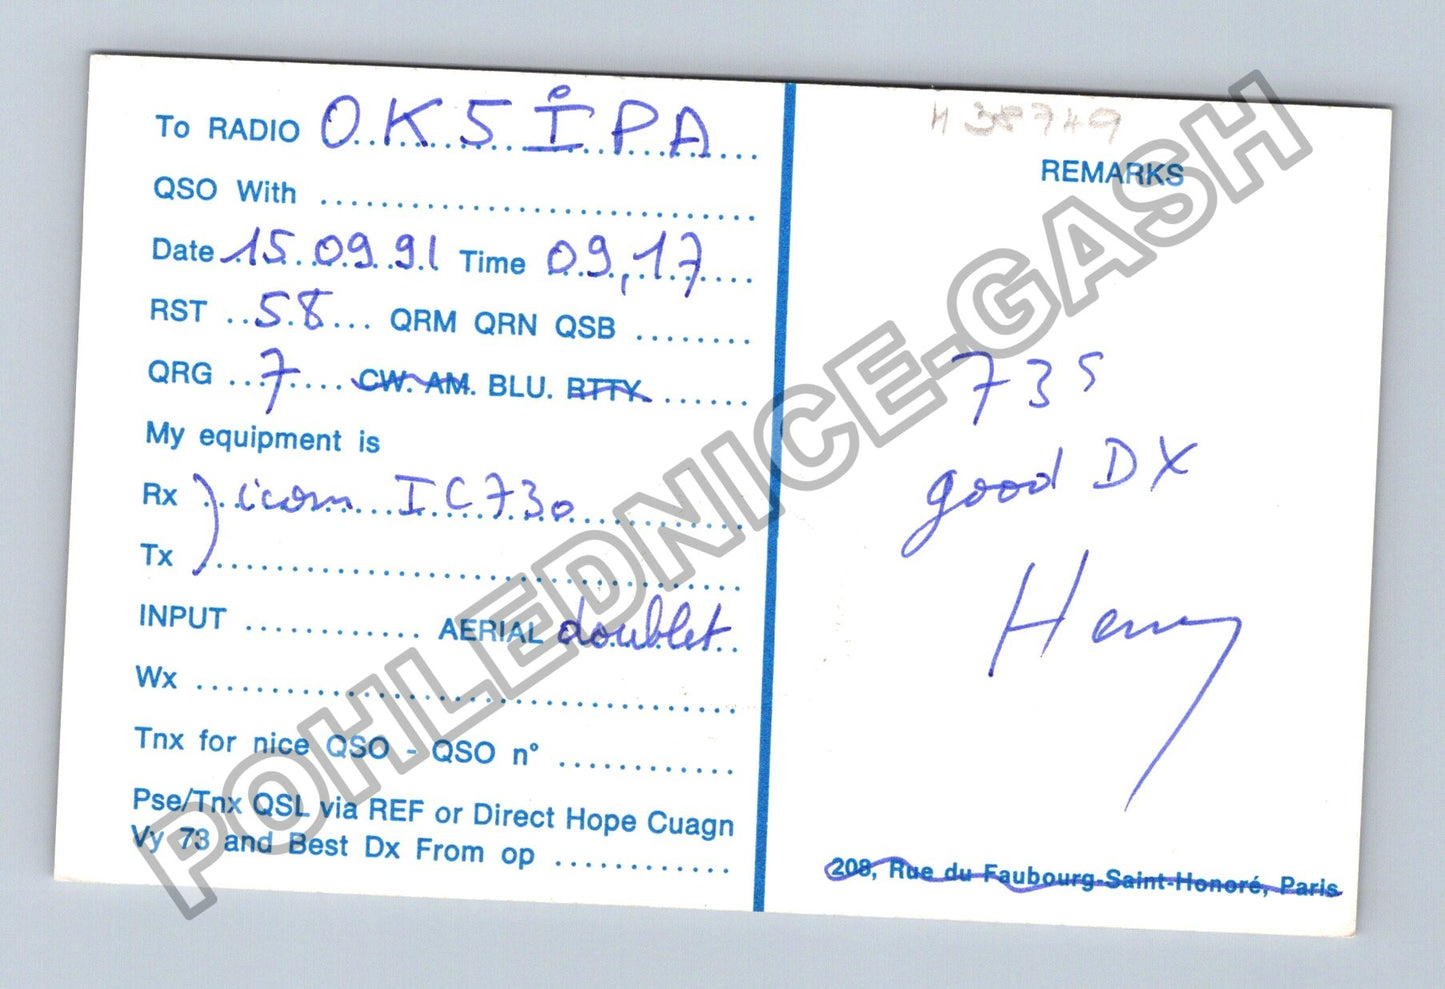 To RADIO OK5IPA
QSO With
Date 15.09.91 Time 09,17
RST 58 QRM QRN QSB
QRG 7 CW. AM. BLU. RTTY.
My equipment is
Rx icom IC730
Tx
INPUT AERIAL doublet
Wx
Tnx for nice QSO - QSO n°
Pse/Tnx QSL via REF or Direct Hope Cuagn
Vy 73 and Best Dx From op
H38749
REMARKS
73s
good DX
Henry
208, Rue du Faubourg-Saint-Honoré, Paris
POHLEDNICE-GASH